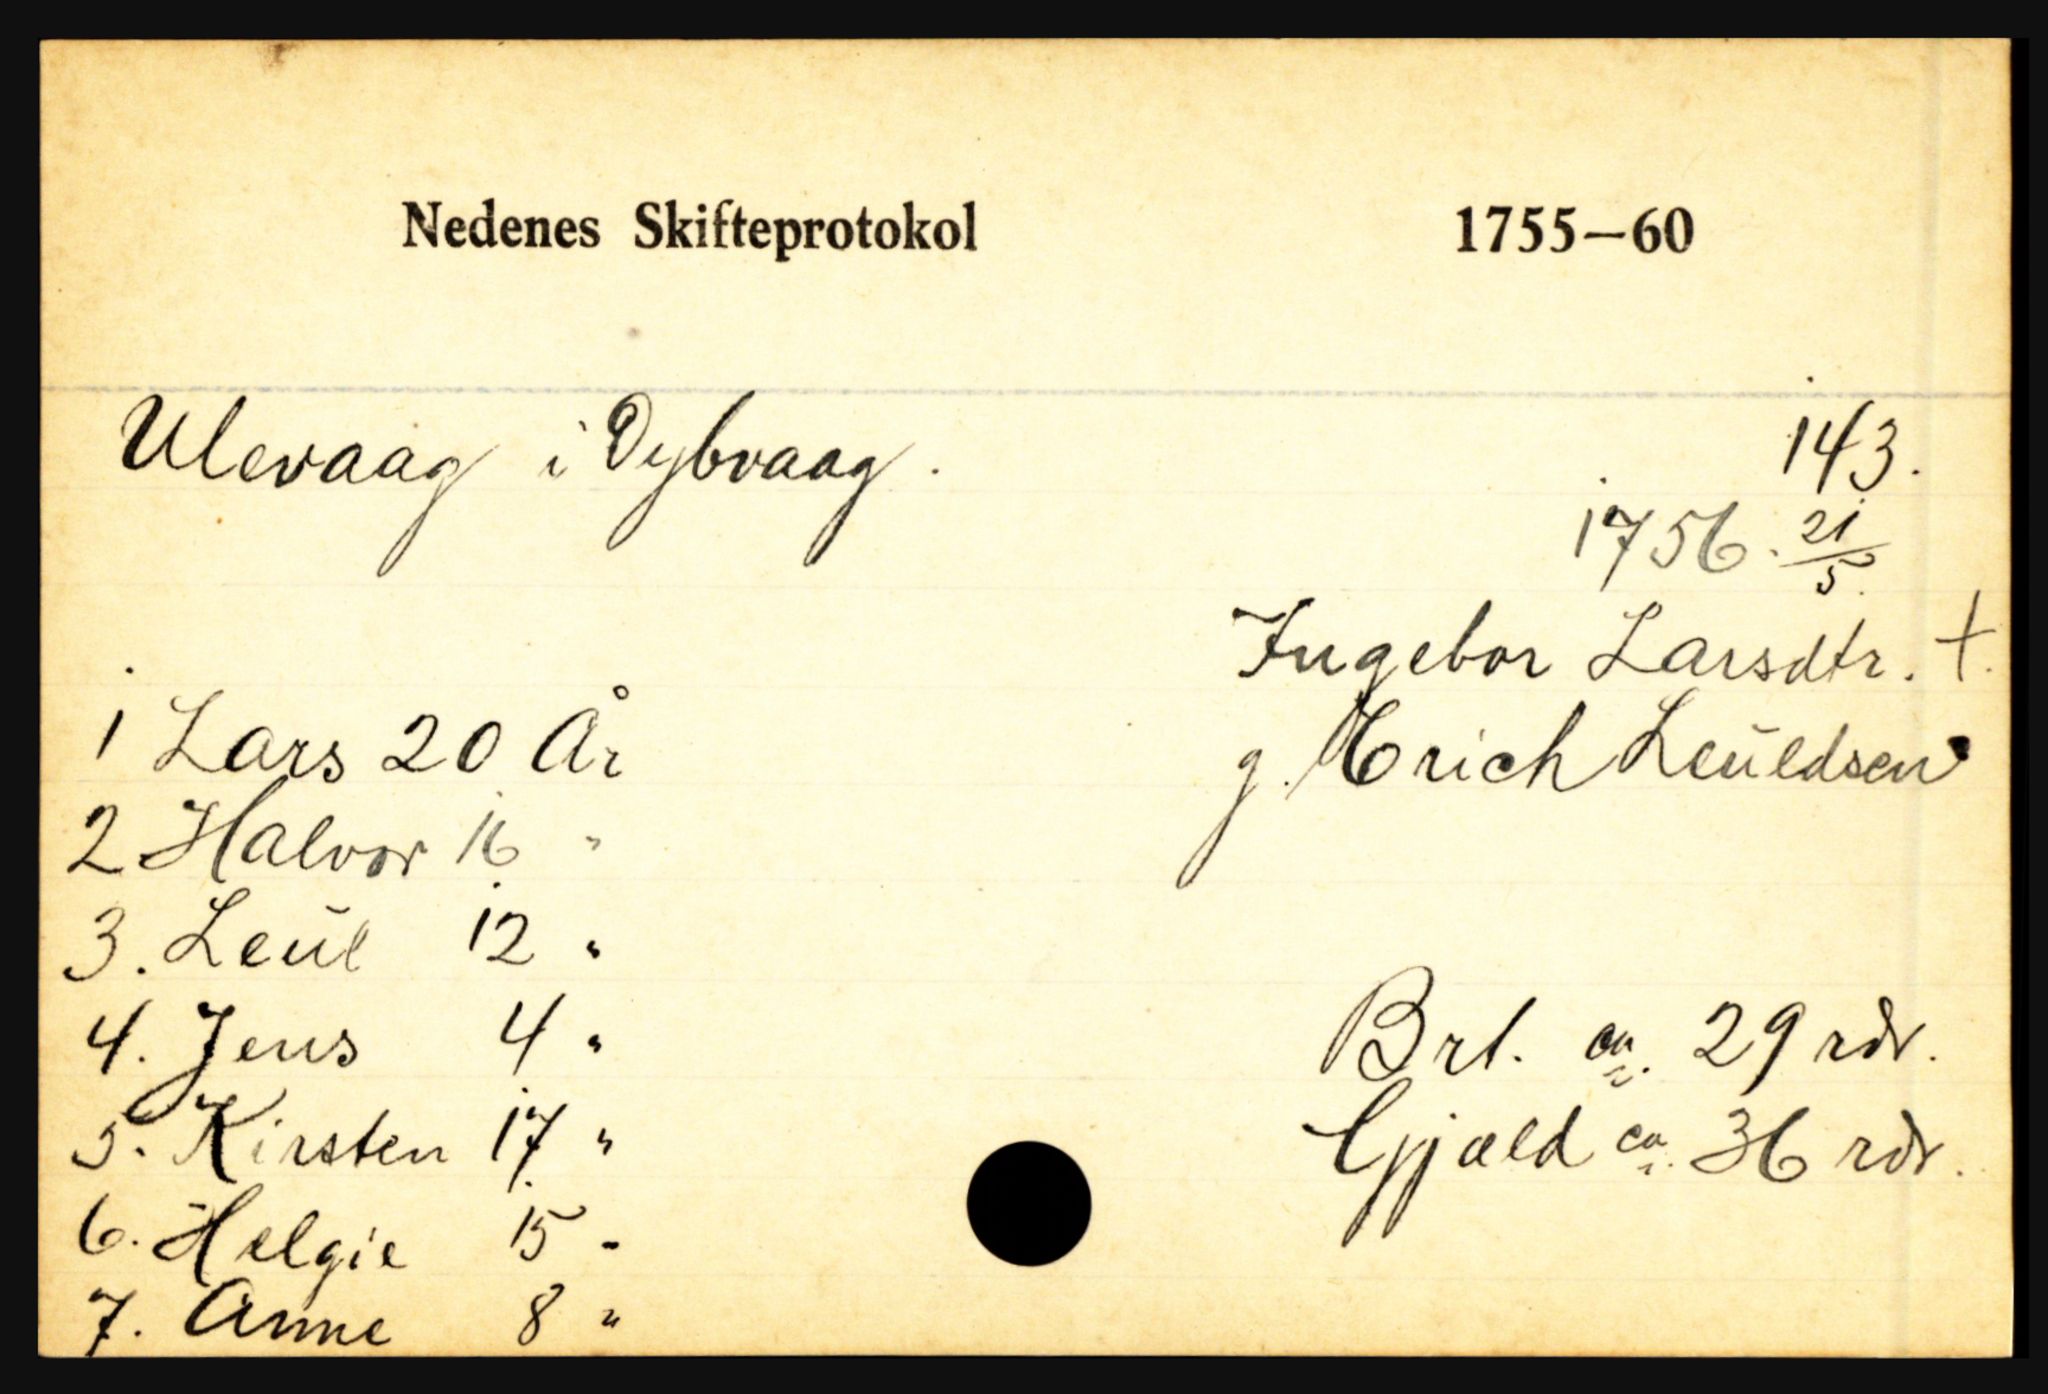 Nedenes Skifteprotokol 1755—60
Ulevaag i Dybvaag. 143.
1756. 21/5.
Ingebor Larsdtr. †.
g. Erich Leŭldsen
1 Lars 20 År
2 Halvor 16 "
3. Leŭl 12 "
4. Jens 4 "
5. Kirsten 17 "
6. Helgie 15 "
7. Anne 8 "
Brt. ca. 29 rdr.
Gjæld ca. 36 rdr.